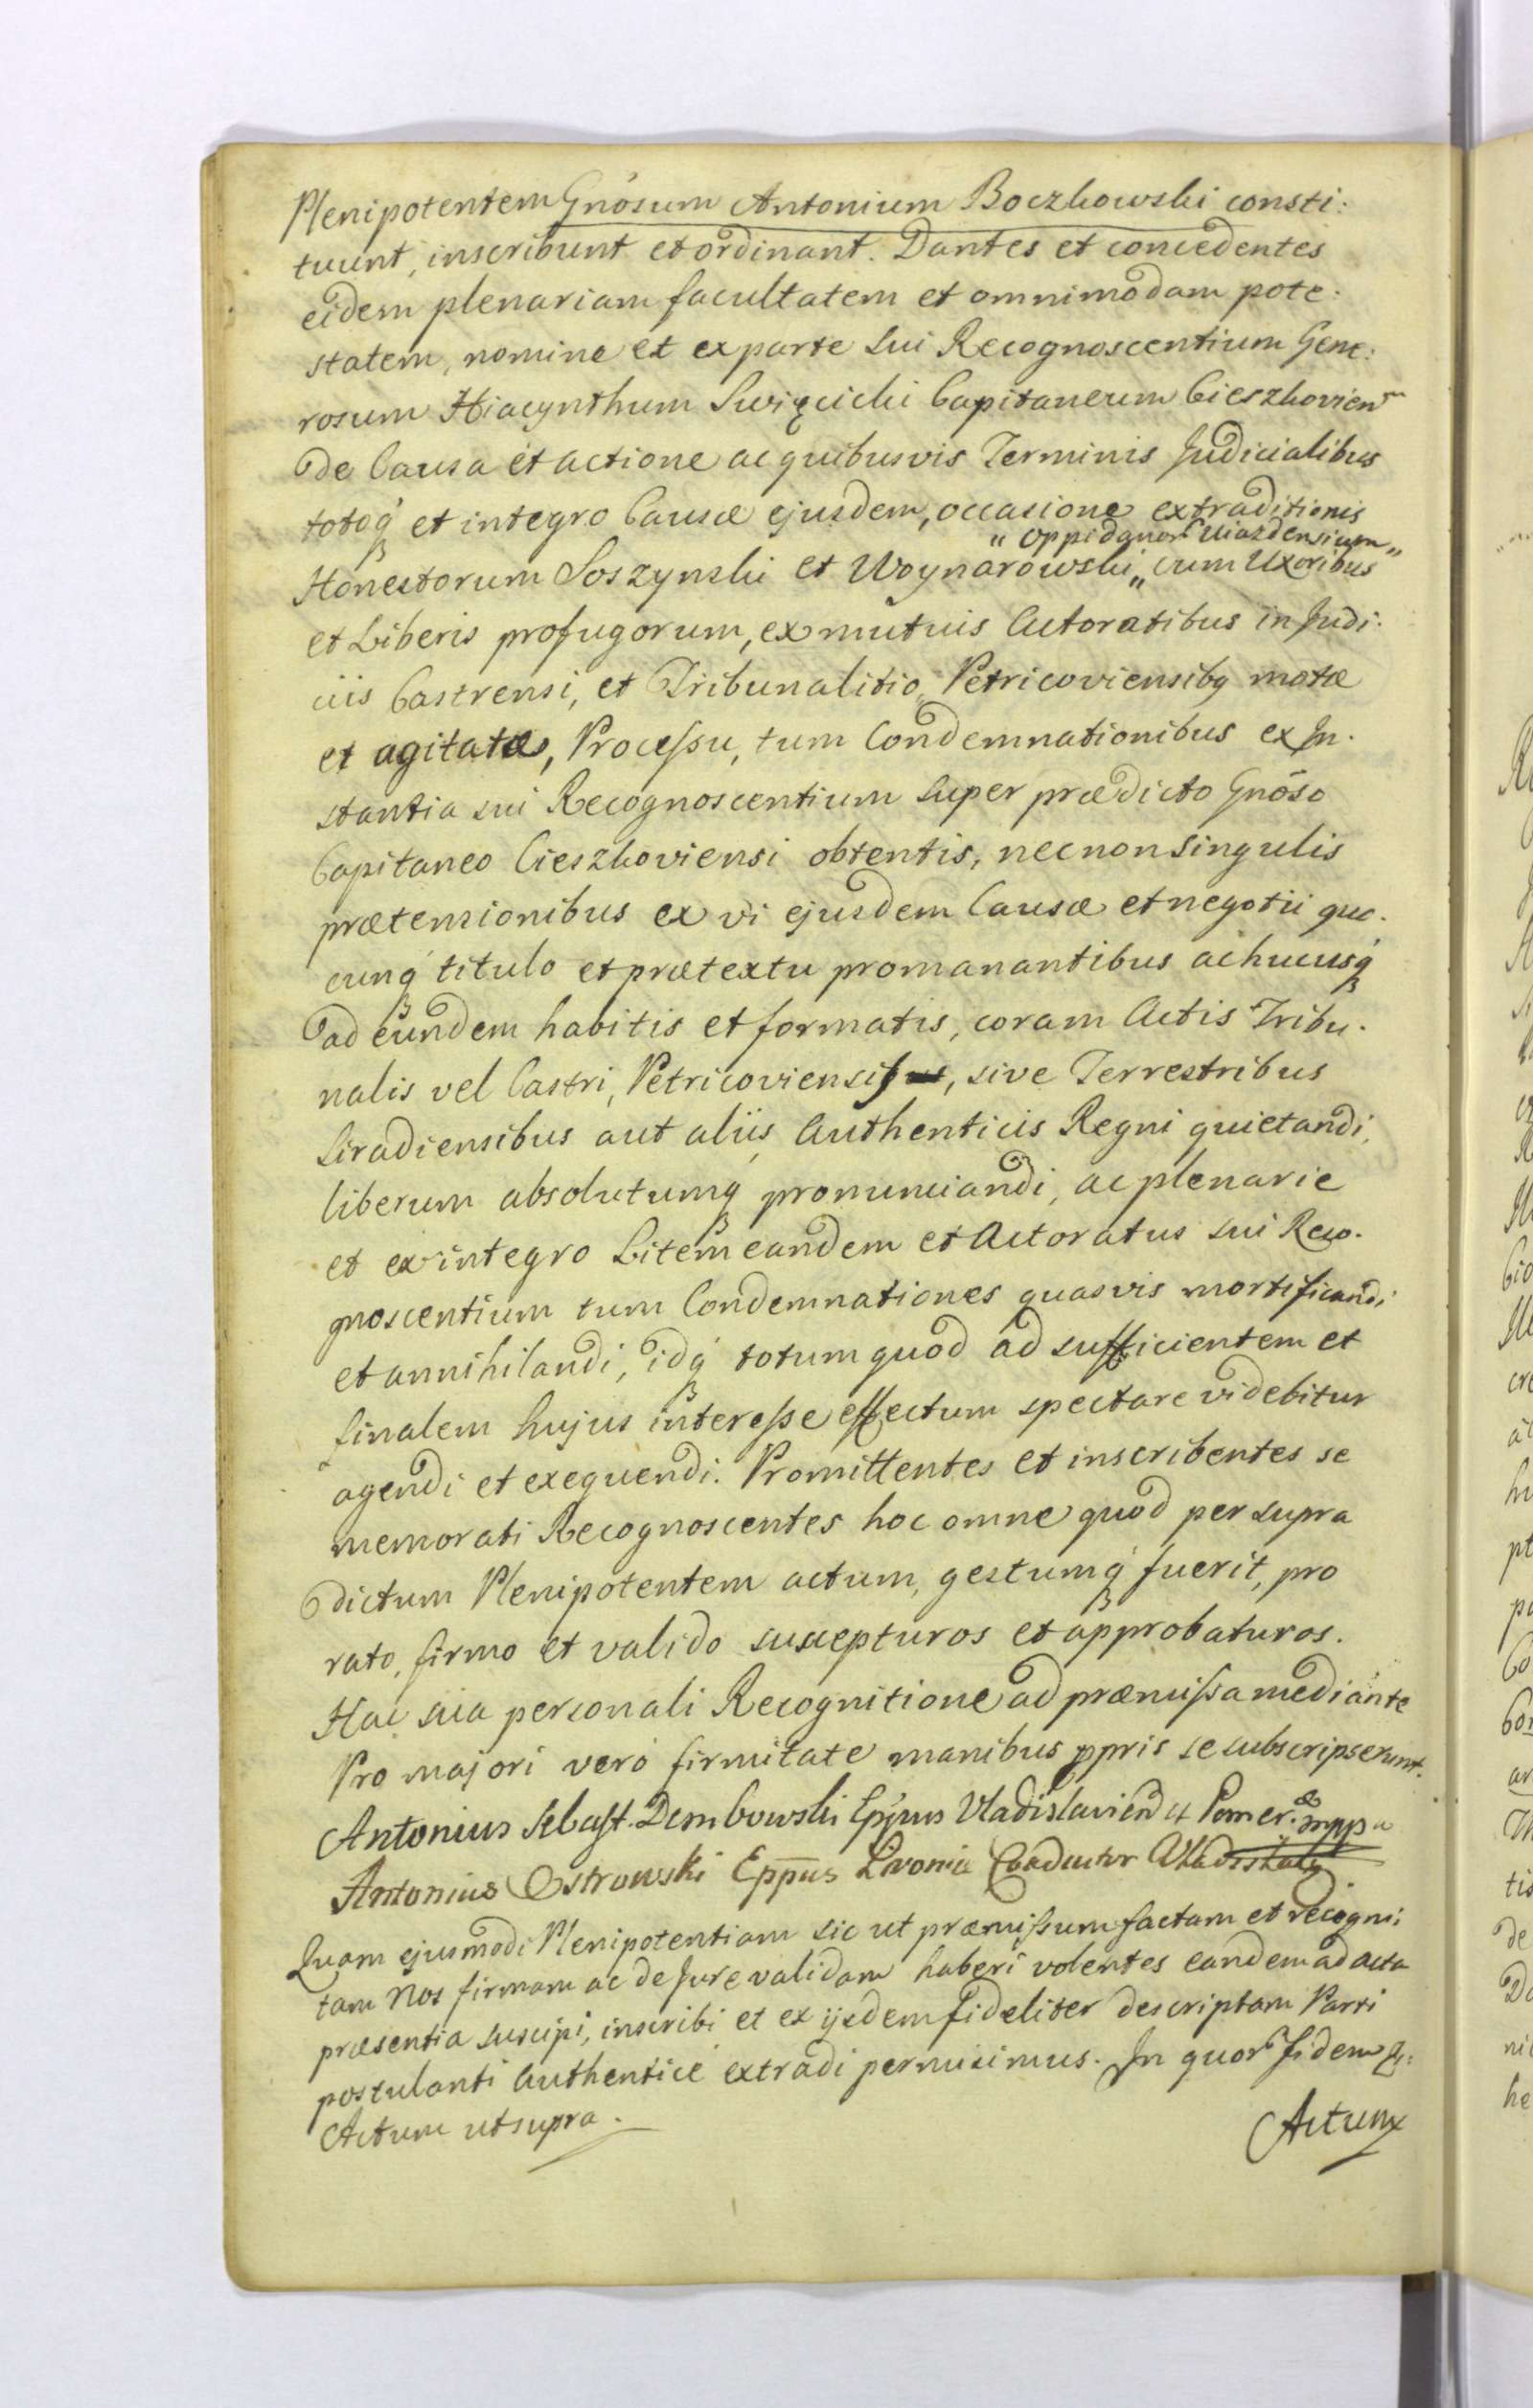 Plenipotentem Gnõsum Antonium Boczkowski consti:
tuunt, inscribunt et ordinant. Dantes et concedentes
eidem plenariam facultatem et omnimodam pote:
statem, nomine et ex parte sui Recognoscentium Gene:
rosum Hiacynthum Swięcicki Capitaneum Cieszkovien
de Causa et actione ac quibusvis Terminis Judicialibus
totoq́ et integro Causæ ejusdem, occasione extraditionis
„ Oppidanor Uiazdensium „
Honestorum Soszynski et Woynarowski „ cum Uxoribus
et Liberis profugorum, ex mutuis Actoratibus in Judi.
ciis Castrensi, et Tribunalitio, Petricoviensibq motæ
et agitatæ, Processu, tum Condemnationibus ex In.
stantia sui Recognoscentium super prædicto Gnõso
Capitaneo Cieszkoviensi obtentis, nec non singulis
prætensionibus ex vi ejusdem Causæ et negotii quo.
cunq́ titulo et prætextu promanantibus ac hucusq́
ad eundem habitis et formatis, coram Actis Tribu.
nalis vel Castri, Petricoviensis, sive Terrestribus
Siradiensibus aut aliis Authenticis Regni quietandi,
liberum absolutumq́ pronunciandi, ac plenarie
et ex integro Litem eandem et Actoratus sui Reco.
gnoscentium tum Condemnationes quasvis mortificandi
et annihilandi, idq́ totum quod ad sufficientem et
finalem hujus interesse effectum spectare videbitur
agendi et exequendi. Promittentes et inscribentes se
memorati Recognoscentes hoc omne quod per supra
dictum Plenipotentem actum, gestumq́ fuerit, pro
rato, firmo et valido suscepturos et approbaturos.
Hac sua personali Recognitione ad præmissa mediante
Pro majori vero firmitate manibus ppris se subscripserunt.
Antonius Sebast. Dembowski Epp̃us Vladislavien et Pomer. mpp
Antonius Ostrowski Epp̃us Livoniæ Coadiutor
Quam ejusmodi Plenipotentiam sic ut præmissum factam et recogni
tam Nos firmam ac de Jure validam haberi volentes eandem ad acta
præsentia suscipi, inscribi et ex ijsdem fideliter descriptam Parti
postulanti Authenticè extradi permisimus. In quor fidem &:
Actum ut supra.
Actum